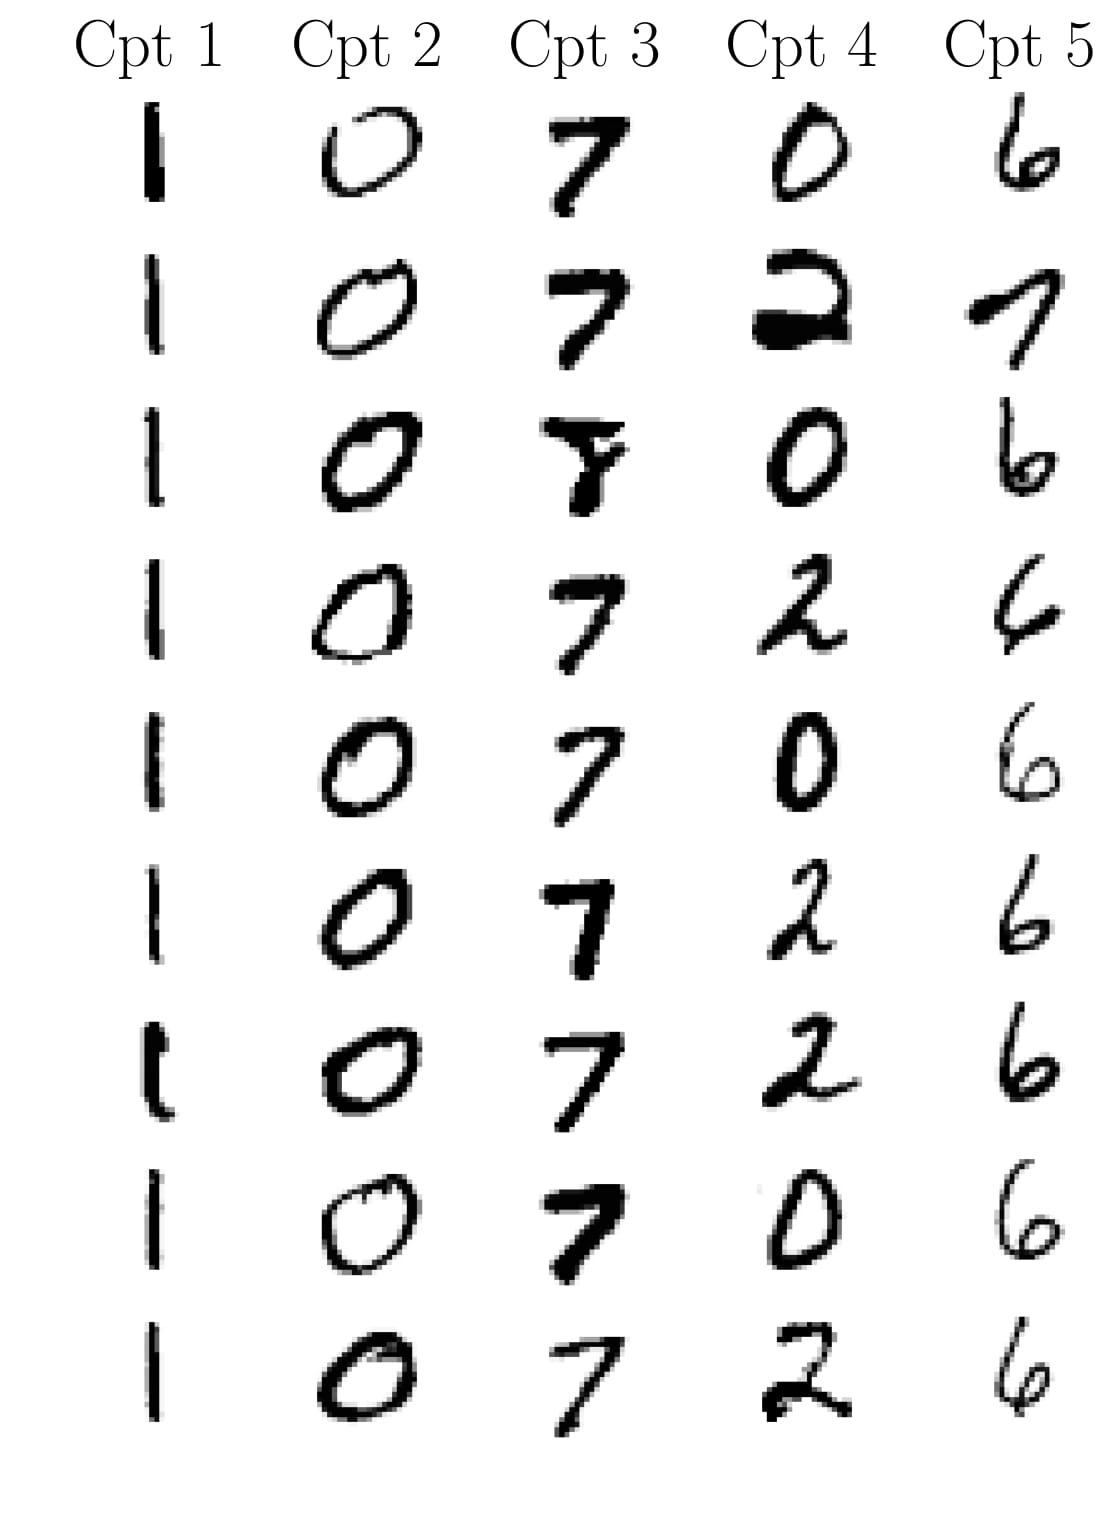 Cpt 1 Cpt 2 Cpt 3 Cpt 4 Cpt 5
1 0 7 0 6
1 0 7 2 7
1 0 8 0 6
1 0 7 2 6
1 0 7 0 6
1 0 7 2 6
1 0 7 2 6
1 0 7 0 6
1 0 7 2 6